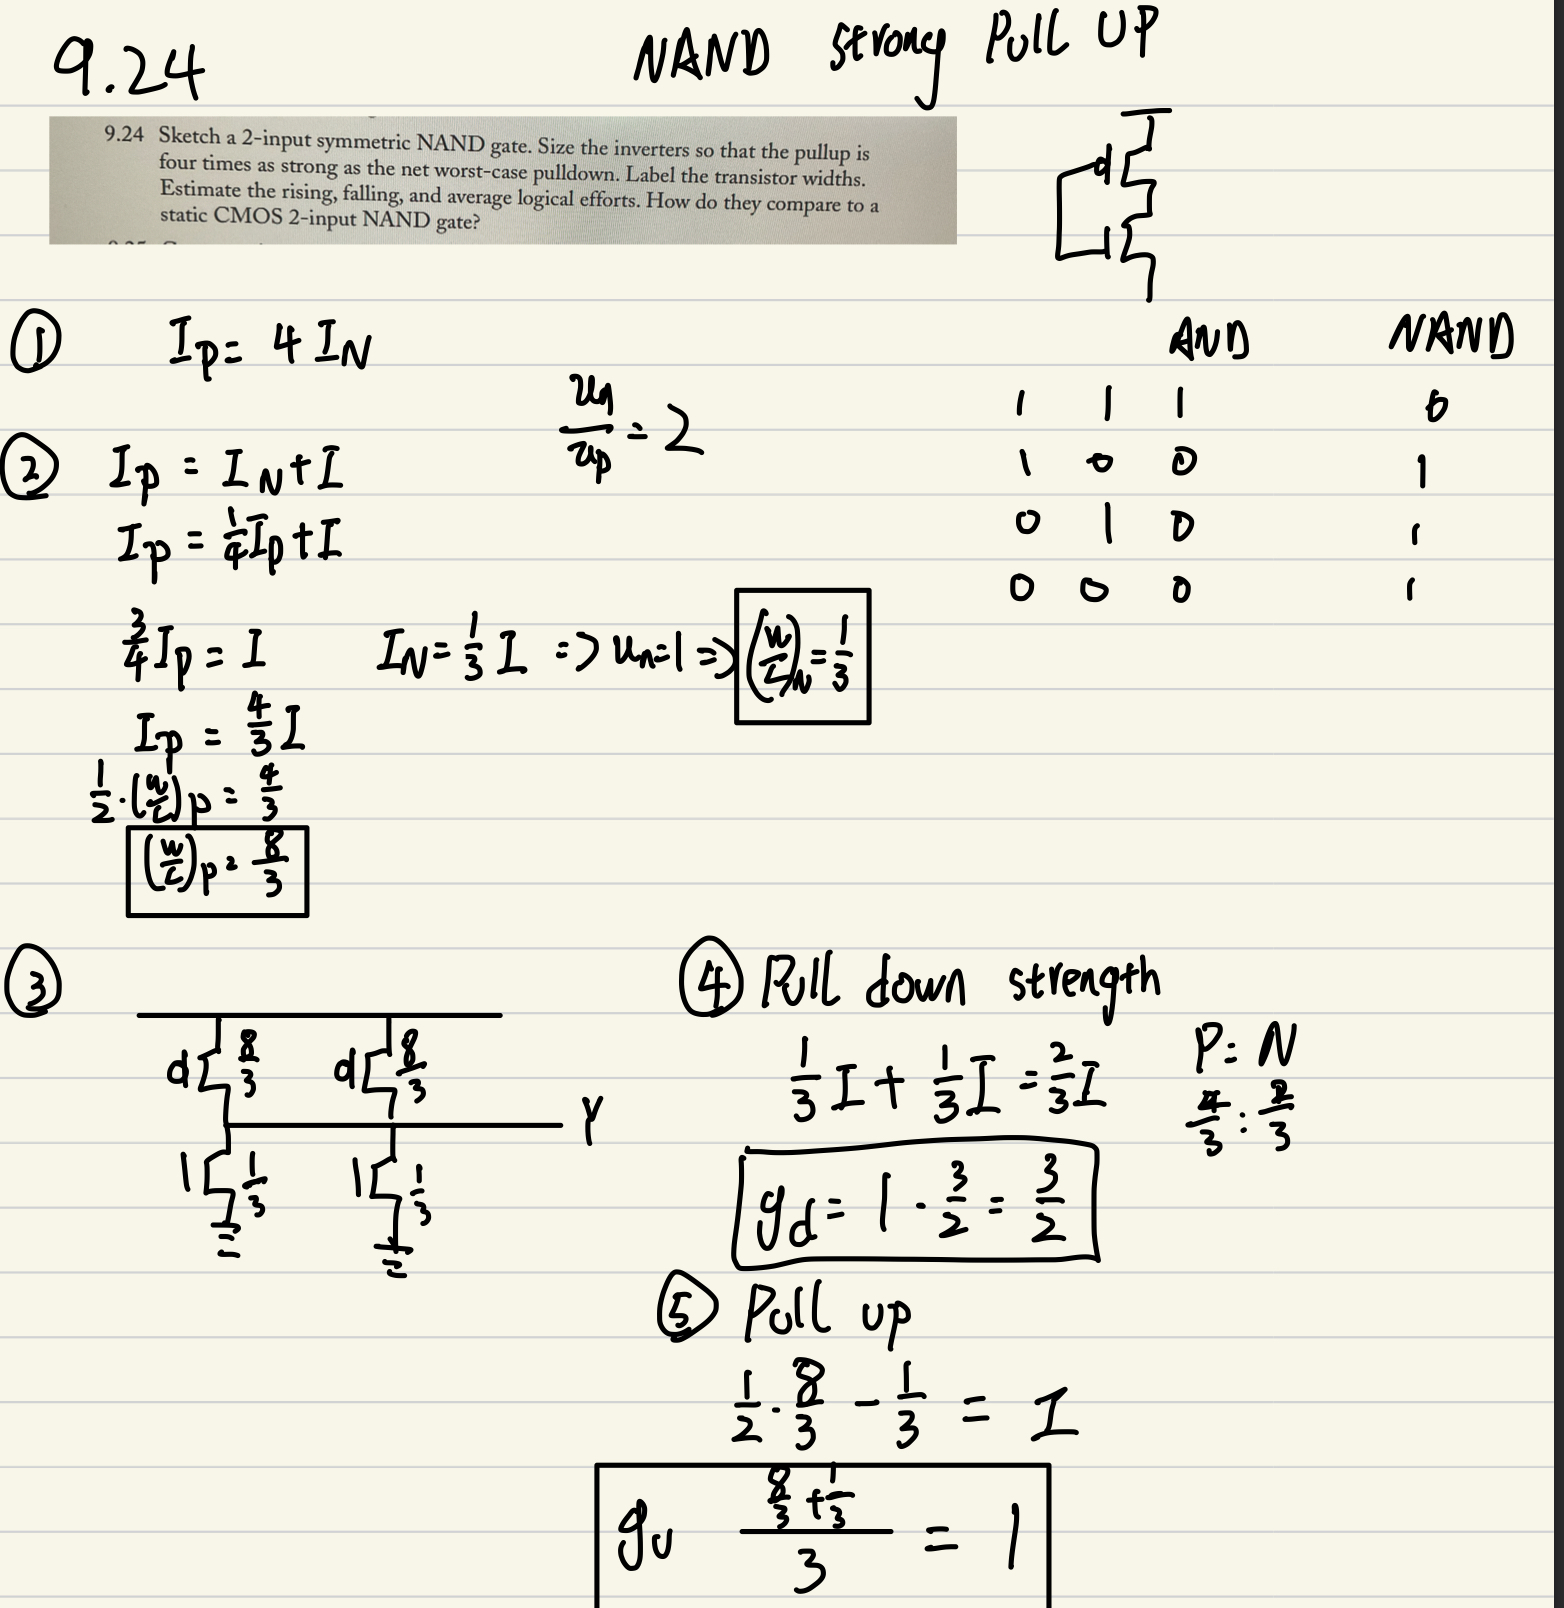 9.24
NAND strong Pull UP
9.24 Sketch a 2-input symmetric NAND gate. Size the inverters so that the pullup is
four times as strong as the net worst-case pulldown. Label the transistor widths.
Estimate the rising, falling, and average logical efforts. How do they compare to a
static CMOS 2-input NAND gate?
① Ip = 4 IN
un/up = 2
② Ip = IN + I
Ip = 1/4 Ip + I
3/4 Ip = I
IN = 1/3 I => un=1 => (W/L)N = 1/3
Ip = 4/3 I
1/2 · (W/L)p = 4/3
(W/L)p = 8/3
AND NAND
1 1 1 0
1 0 0 1
0 1 0 1
0 0 0 1
③
8/3 8/3
Y
1/3 1/3
④ Pull down strength
1/3 I + 1/3 I = 2/3 I
P : N
4/3 : 2/3
gd = 1 · 3/2 = 3/2
⑤ Pull up
1/2 · 8/3 - 1/3 = I
gu (8/3 + 1/3)/3 = 1